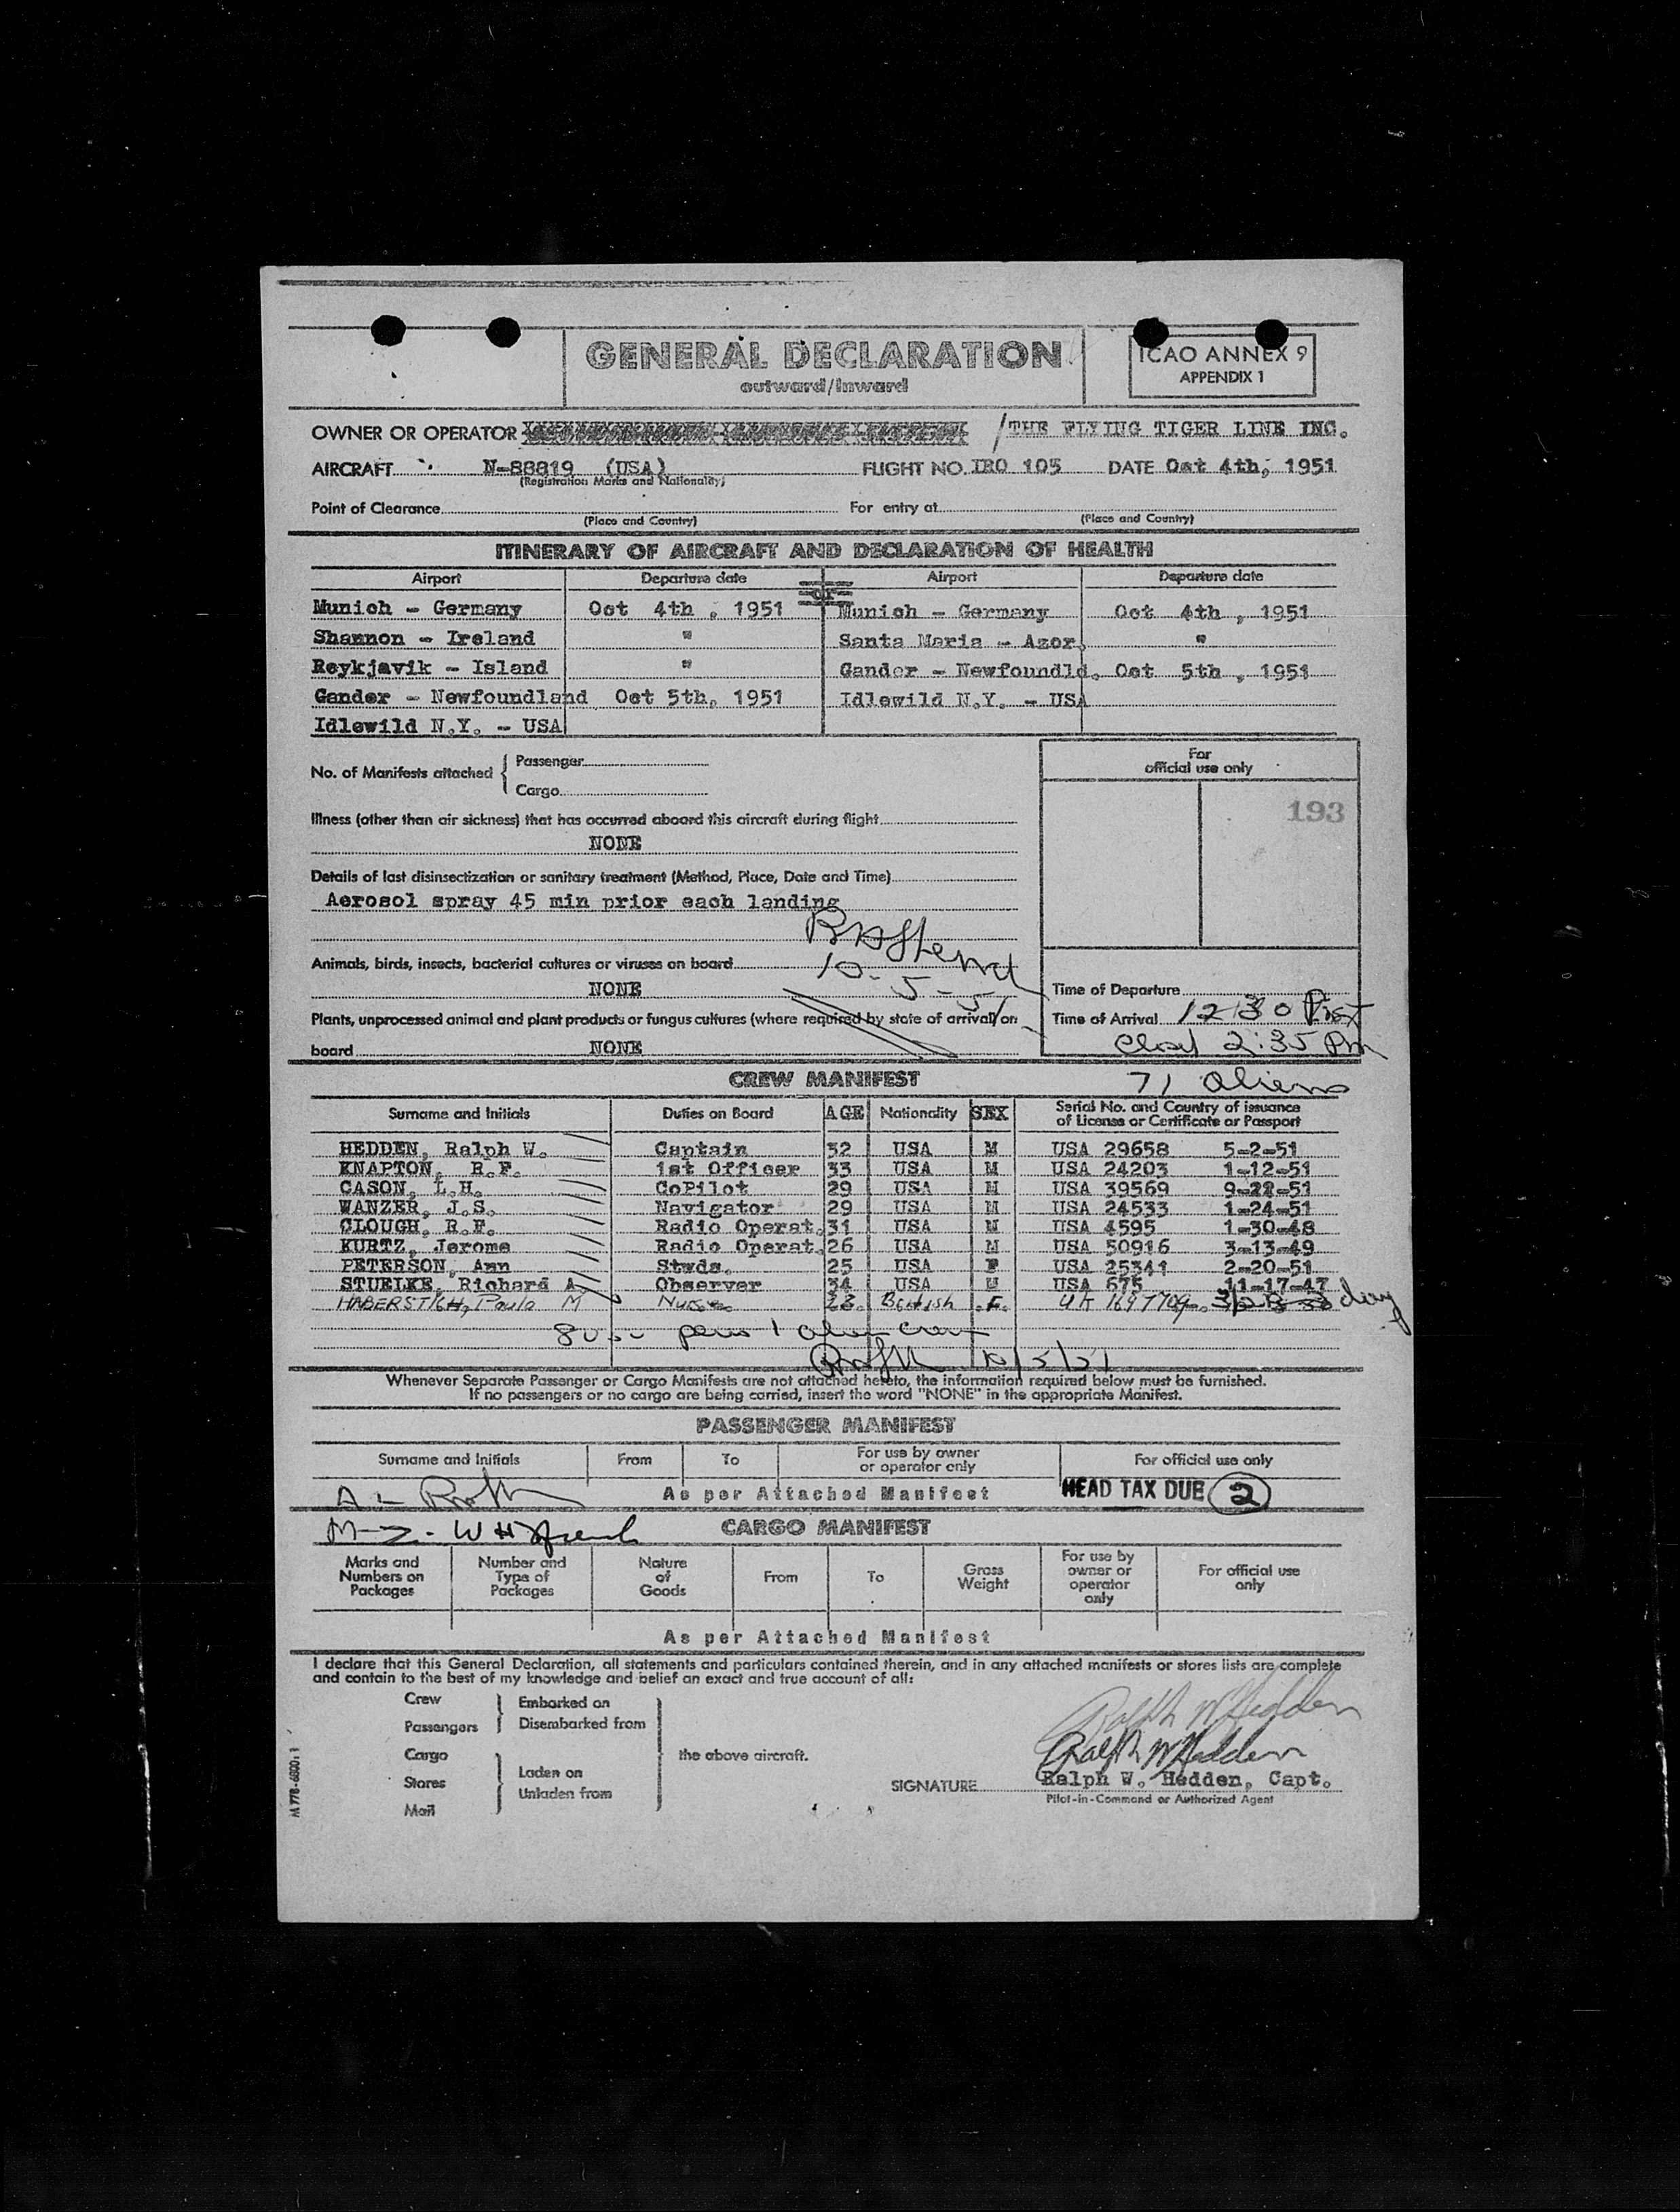 GENERAL DECLARATION
outward/inward
ICAO ANNEX 9
APPENDIX 1
OWNER OR OPERATOR / THE FLYING TIGER LINE INC.
AIRCRAFT N-88819 (USA) FLIGHT NO. IRO 105 DATE Oct 4th, 1951
(Registration Marks and Nationality)
Point of Clearance For entry at
(Place and Country) (Place and Country)
ITINERARY OF AIRCRAFT AND DECLARATION OF HEALTH
Airport Departure date or Airport Departure date
Munich - Germany Oct 4th, 1951 Munich - Germany Oct 4th, 1951
Shannon - Ireland " Santa Maria - Azor. "
Reykjavik - Island " Gander - Newfoundld. Oct 5th, 1951
Gander - Newfoundland Oct 5th, 1951 Idlewild N.Y. - USA
Idlewild N.Y. - USA
No. of Manifests attached { Passenger
Cargo
For official use only
193
Illness (other than air sickness) that has occurred aboard this aircraft during flight
NONE
Details of last disinsectization or sanitary treatment (Method, Place, Date and Time)
Aerosol spray 45 min prior each landing
Animals, birds, insects, bacterial cultures or viruses on board
10-5-51
NONE
Time of Departure
Plants, unprocessed animal and plant products or fungus cultures (where required by state of arrival) on
board NONE
Time of Arrival 12 30 P
2:35 Pm
CREW MANIFEST 71 aliens
Surname and Initials Duties on Board AGE Nationality SEX Serial No. and Country of issuance of License or Certificate or Passport
HEDDEN, Ralph W. Captain 32 USA M USA 29658 5-2-51
KNAPTON, R.F. 1st Officer 33 USA M USA 24203 1-12-51
CASON, L.H. CoPilot 29 USA M USA 39569 9-22-51
WANZER, J.S. Navigator 29 USA M USA 24533 1-24-51
CLOUGH, R.F. Radio Operat. 31 USA M USA 4595 1-30-48
KURTZ, Jerome Radio Operat. 26 USA M USA 50916 3-13-49
PETERSON, Ann Stwds. 25 USA F USA 25341 2-20-51
STUELKE, Richard A. Observer 34 USA M USA 675 11-17-47
HABERSTICH, Paula M Nurse 28. British F. UK
8 1 alien crew
10/5/51
Whenever Separate Passenger or Cargo Manifests are not attached hereto, the information required below must be furnished.
If no passengers or no cargo are being carried, insert the word "NONE" in the appropriate Manifest.
PASSENGER MANIFEST
Surname and Initials From To For use by owner or operator only For official use only
As per Attached Manifest HEAD TAX DUE 2
CARGO MANIFEST
Marks and Numbers on Packages Number and Type of Packages Nature of Goods From To Gross Weight For use by owner or operator only For official use only
As per Attached Manifest
I declare that this General Declaration, all statements and particulars contained therein, and in any attached manifests or stores lists are complete
and contain to the best of my knowledge and belief an exact and true account of all:
Crew
Passengers
Embarked on
Disembarked from
Cargo
Stores
Mail
Laden on
Unladen from
the above aircraft.
Ralph W Hedden
Ralph W Hedden
SIGNATURE Ralph W. Hedden, Capt.
Pilot-in-Command or Authorized Agent